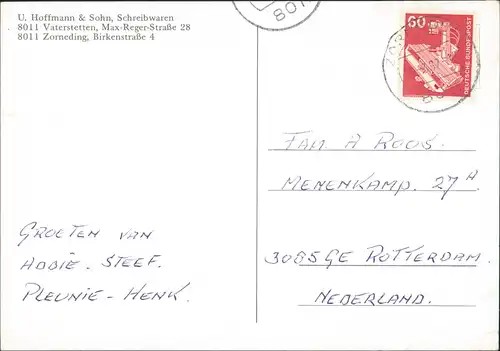 U. Hoffmann & Sohn, Schreibwaren
8011 Vaterstetten, Max-Reger-Straße 28
8011 Zorneding, Birkenstraße 4
801
60
DEUTSCHE BUNDESPOST
ZOR
FAM A ROOS.
MENENKAMP. 27 A
3085GE ROTTERDAM.
NEDERLAND.
GROETEN VAN
ABBIE. STEEF.
PLEUNIE - HENK.